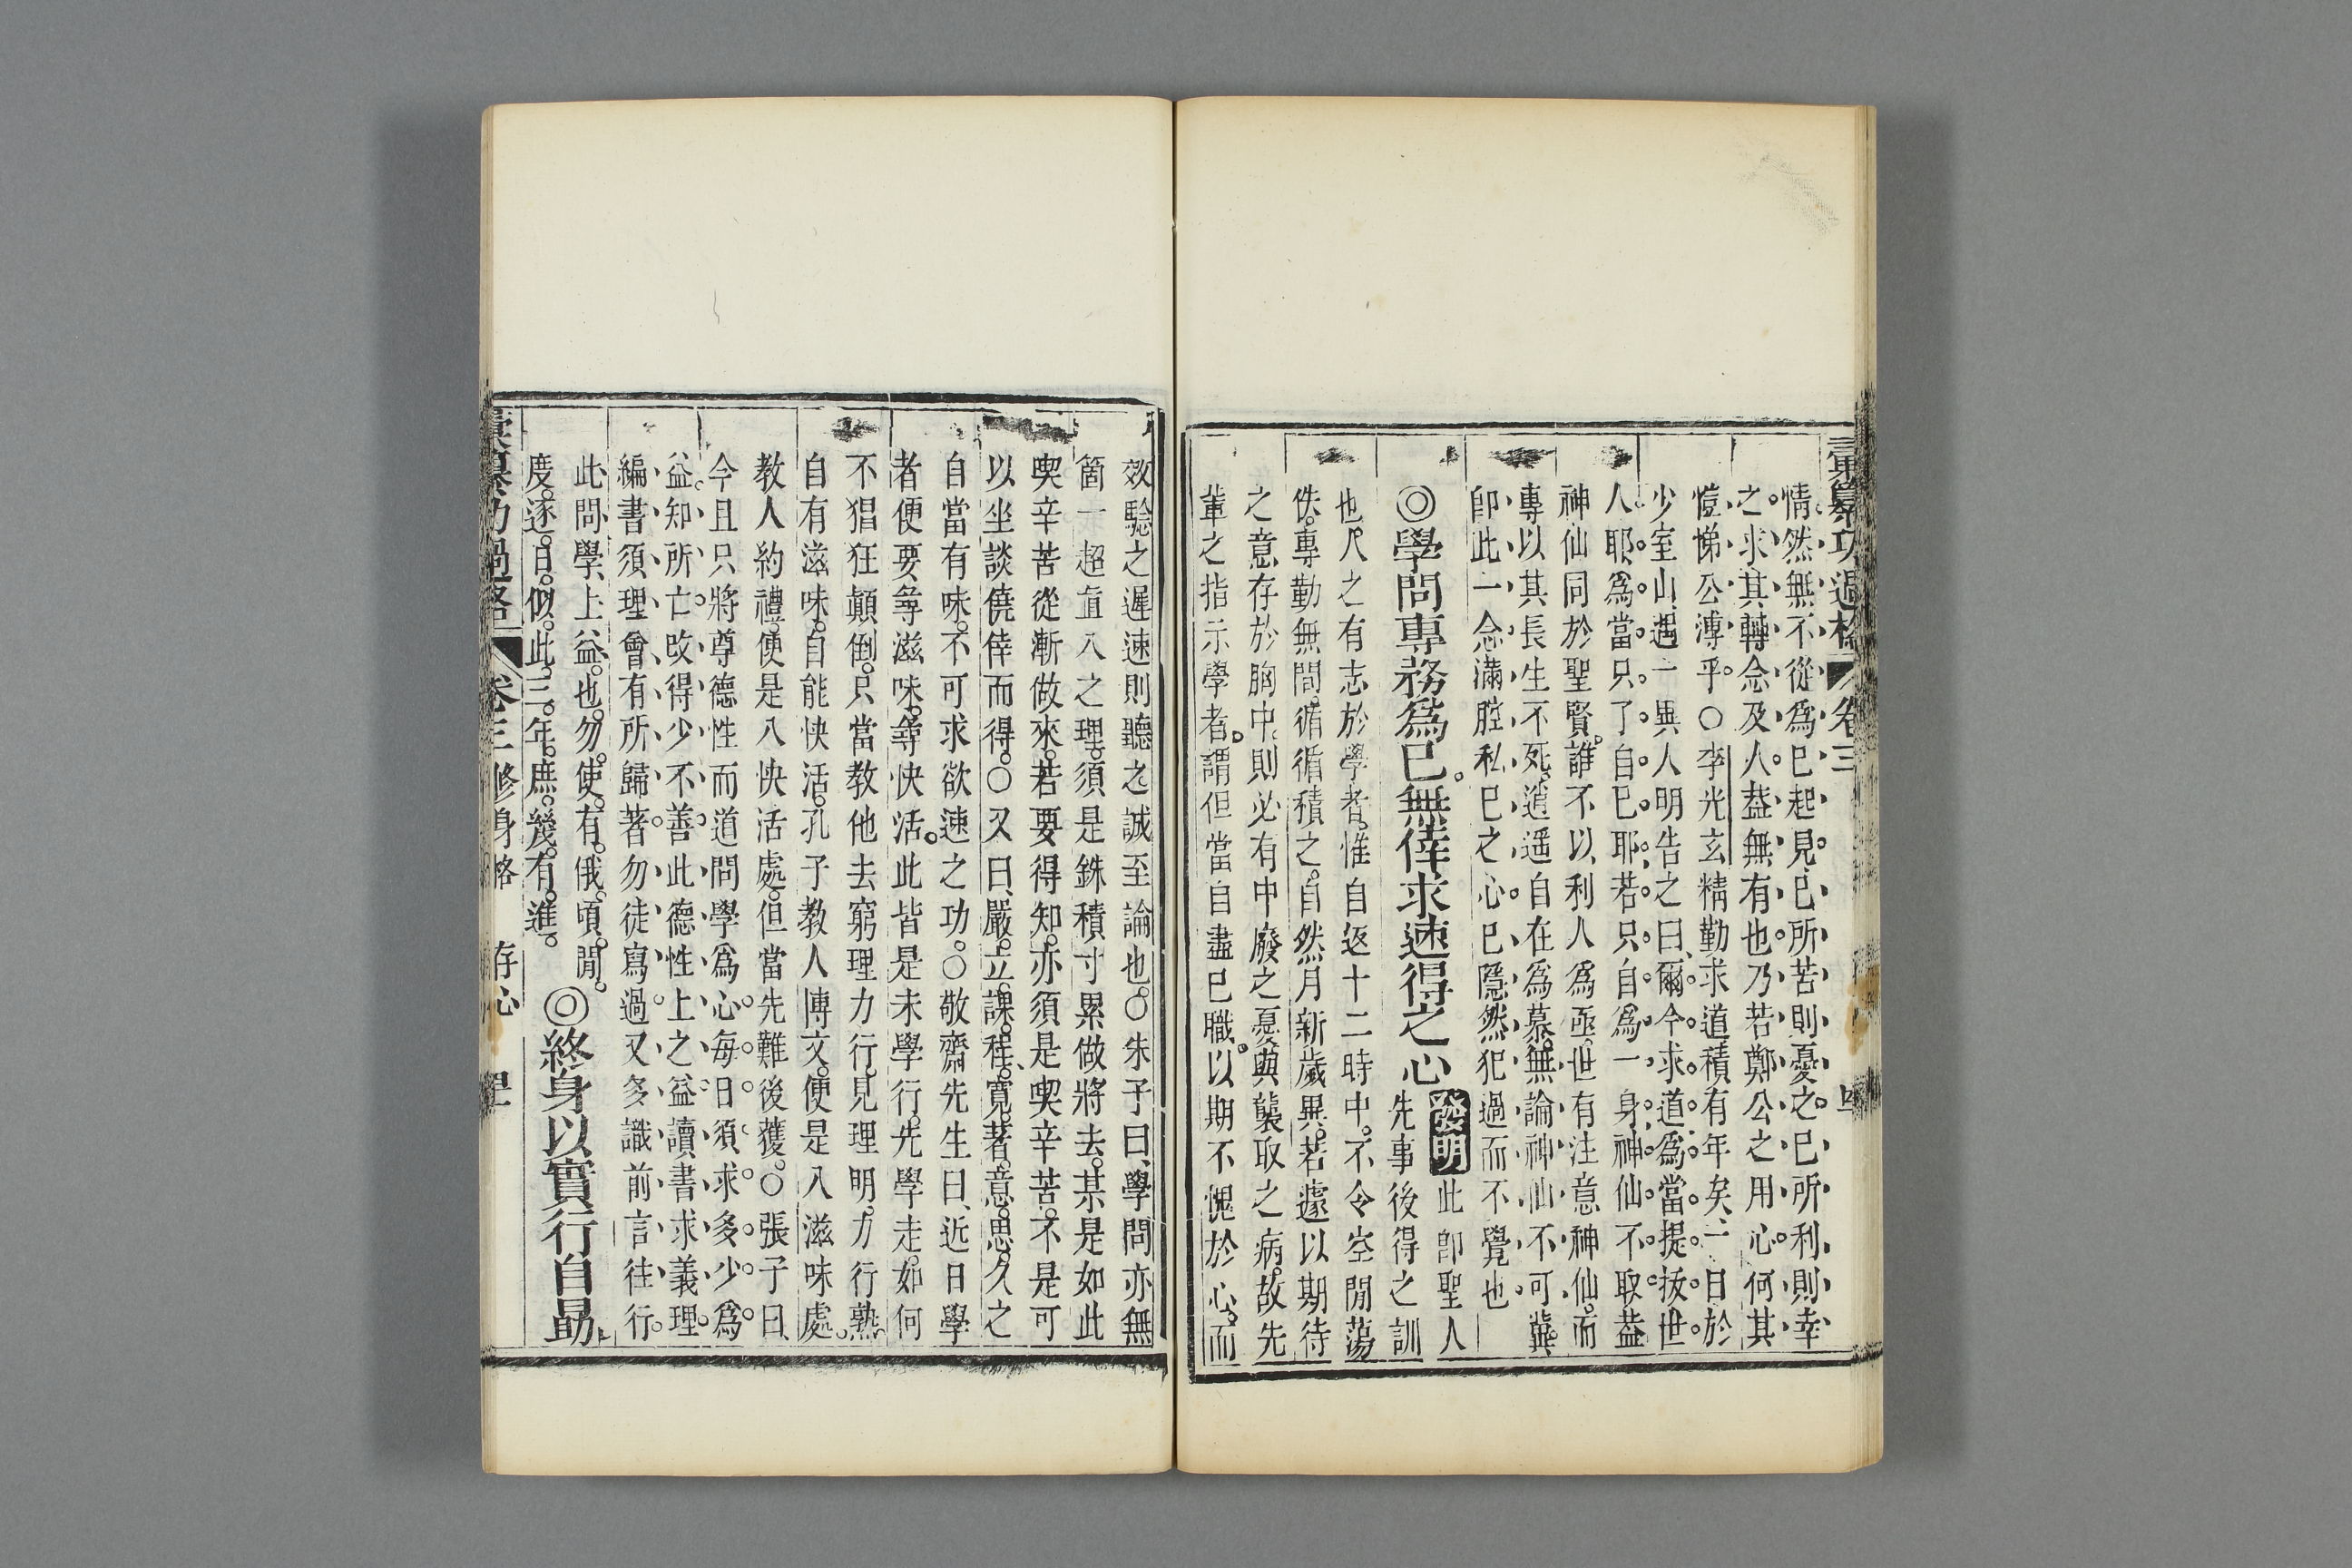 彙纂功過格 卷三
情然無不從爲已起見已所苦則憂之已所利則幸
之求其轉念及人葢無有也乃若鄭公之用心何其
愷悌公溥乎○李光玄精勤求道積有年矣一日於
少室山遇一異人明告之曰爾今求道爲當提拔世
人耶爲當只了自已耶若只自爲一身神仙不取葢
神仙同於聖賢誰不以利人爲亟世有注意神仙而
專以其長生不死逍遥自在爲慕無論神仙不可冀
卽此一念滿腔私已之心已隱然犯過而不覺也
◎學問專務爲已無倖求速得之心 發明 此卽聖人
先事後得之訓
也凡之有志於學者惟自返十二時中不令空閒蕩
佚專勤無間循循積之自然月新歲異若遽以期待
之意存於胸中則必有中廢之憂與襲取之病故先
輩之指示學者謂但當自盡已職以期不愧於心而
效騐之遲速則聽之誠至論也○朱子曰學問亦無
箇一超直入之理須是銖積寸累做將去某是如此
喫辛苦從漸做來若要得知亦須是喫辛苦不是可
以坐談僥倖而得○又曰嚴立課程寛著意思久之
自當有味不可求欲速之功○敬齋先生曰近日學
者便要尋滋味尋快活此皆是未學行先學走如何
不猖狂顚倒只當教他去窮理力行見理明力行熟
自有滋味自能快活孔子教人博文便是入滋味處
教人約禮便是入快活處但當先難後獲○張子曰
今且只將尊德性而道問學爲心每日須求多少爲
益知所亡改得少不善此德性上之益讀書求義理
編書須理會有所歸著勿徒寫過又多識前言往行
此問學上益也勿使有俄頃閒
度逐日似此三年庶幾有進 ◎終身以實行自勗
彙纂功過格 卷三 修身格 存心